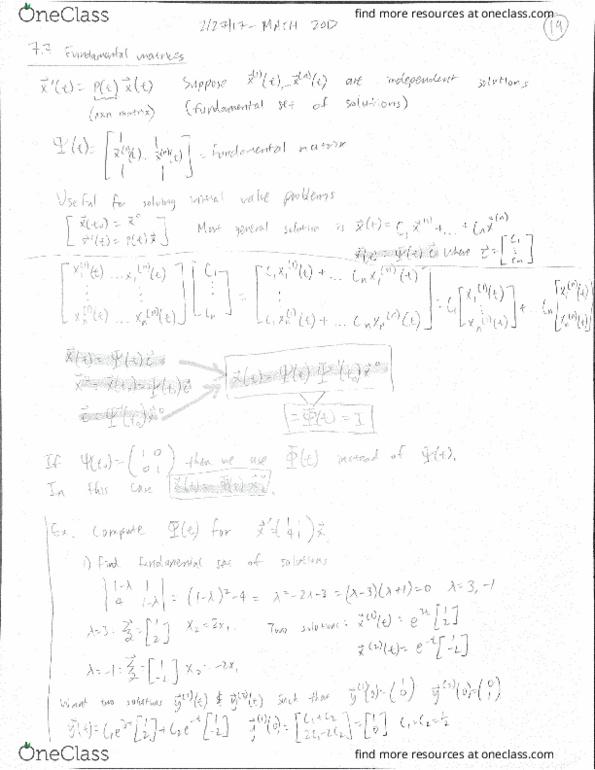 OneClass find more resources at oneclass.com
2/27/17 - MATH 20D
19
7.7 Fundamental matrices
x⃗'(t) = P(t) x⃗(t) Suppose x⃗⁽¹⁾(t), ... x⃗⁽ⁿ⁾(t) are independent solutions
(nxn matrix) (fundamental set of solutions)
Ψ(t) = [x⃗⁽¹⁾(t) ... x⃗⁽ⁿ⁾(t)] = Fundamental matrix
Useful for solving initial value problems
[x⃗(t₀) = x⃗⁰ Most general solution is x⃗(t) = C₁x⃗⁽¹⁾ + ... + Cₙx⃗⁽ⁿ⁾
x⃗'(t) = P(t) x⃗] x⃗(t) = Ψ(t) c⃗ where c⃗ = [C₁ ⋮ Cₙ]
[x₁⁽¹⁾(t) ... x₁⁽ⁿ⁾(t) ⋮ xₙ⁽¹⁾(t) ... xₙ⁽ⁿ⁾(t)] [C₁ ⋮ Cₙ] = [C₁x₁⁽¹⁾(t) + ... Cₙx₁⁽ⁿ⁾(t) ⋮ C₁xₙ⁽¹⁾(t) + ... Cₙxₙ⁽ⁿ⁾(t)] = C₁ [x₁⁽¹⁾(t) ⋮ xₙ⁽¹⁾(t)] + ... Cₙ [x₁⁽ⁿ⁾(t) ⋮ xₙ⁽ⁿ⁾(t)]
x⃗(t) = Ψ(t) c⃗
x⃗⁰ = x⃗(t₀) = Ψ(t₀) c⃗ x⃗(t) = Ψ(t) Ψ⁻¹(t₀) x⃗⁰
c⃗ = Ψ⁻¹(t₀) x⃗⁰ = Φ(t) = I
If Ψ(t₀) = (1 0 0 1) then we use Φ(t) instead of Ψ(t).
In this case
Ex. Compute Φ(t) for x⃗' = (1 1 4 1) x⃗.
1) Find fundamental set of solutions
|1-λ 1 4 1-λ| = (1-λ)² - 4 = λ² - 2λ - 3 = (λ-3)(λ+1) = 0 λ = 3, -1
λ = 3: = [1 2] x₂ = 2x₁ Two solutions: x⃗⁽¹⁾(t) = e³ᵗ [1 2]
x⃗⁽²⁾(t) = e⁻ᵗ [1 -2]
λ = -1: = [1 -2] x₂ = -2x₁
Want two solutions y⃗⁽¹⁾(t) & y⃗⁽²⁾(t) such that y⃗⁽¹⁾(0) = (1 0) y⃗⁽²⁾(0) = (0 1)
y⃗(t) = C₁e³ᵗ [1 2] + C₂e⁻ᵗ [1 -2] y⃗⁽¹⁾(0) = [C₁ + C₂ 2C₁ - 2C₂] = [1 0] C₁ = C₂ = ½
OneClass find more resources at oneclass.com